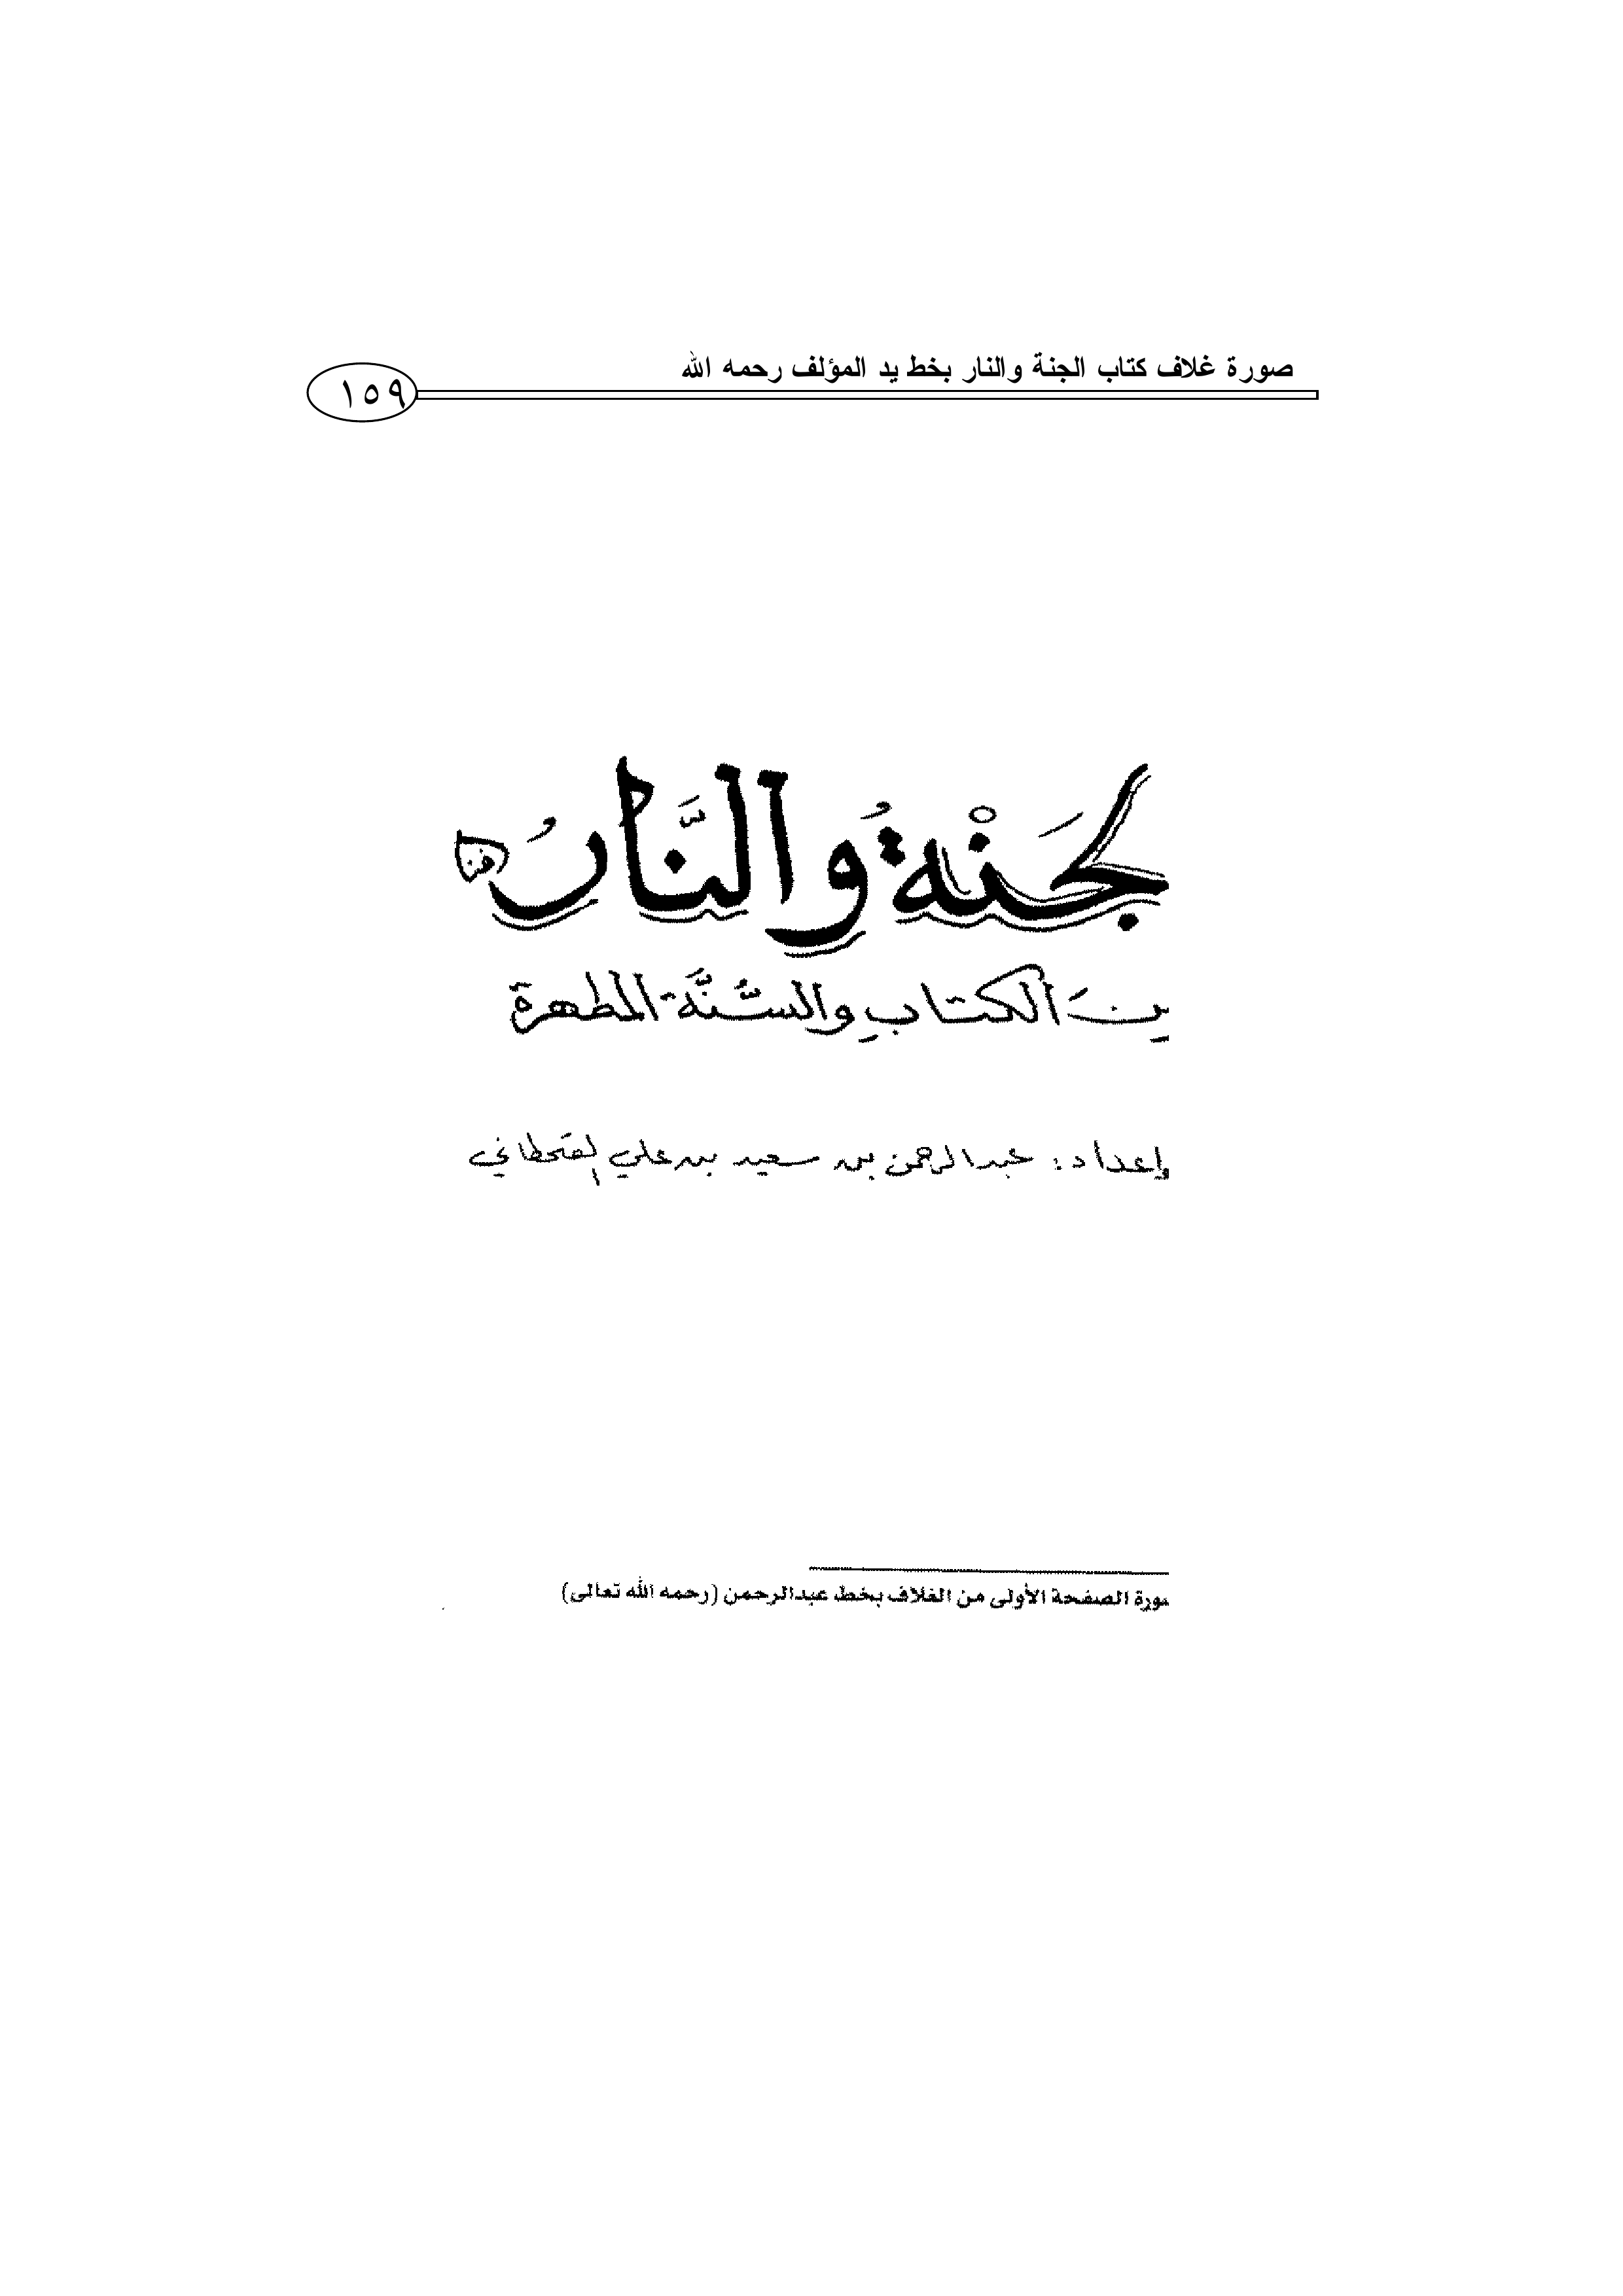 صورة غلاف كتاب الجنة والنار بخط يد المؤلف رحمه الله
١٥٩
لجَنْةُ والنَّارُ
مِنَ الكتابِ والسُّنَّة المطهرة
إعداد : عبدالرحمن بن سعيد بن علي القحطاني
صورة الصفحة الأولى من الغلاف بخط عبدالرحمن (رحمه الله تعالى)